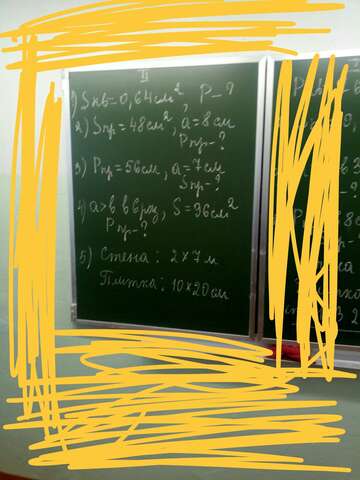 II
1) Sкв=0,64см², P-?
2) Sпр=48см², a=8см
Pпр-?
3) Pпр=56см, a=7см
Sпр-?
4) a>в в 6 раз, S=96см²
Pпр-?
5) Стена: 2×7м
Плитка: 10×20см